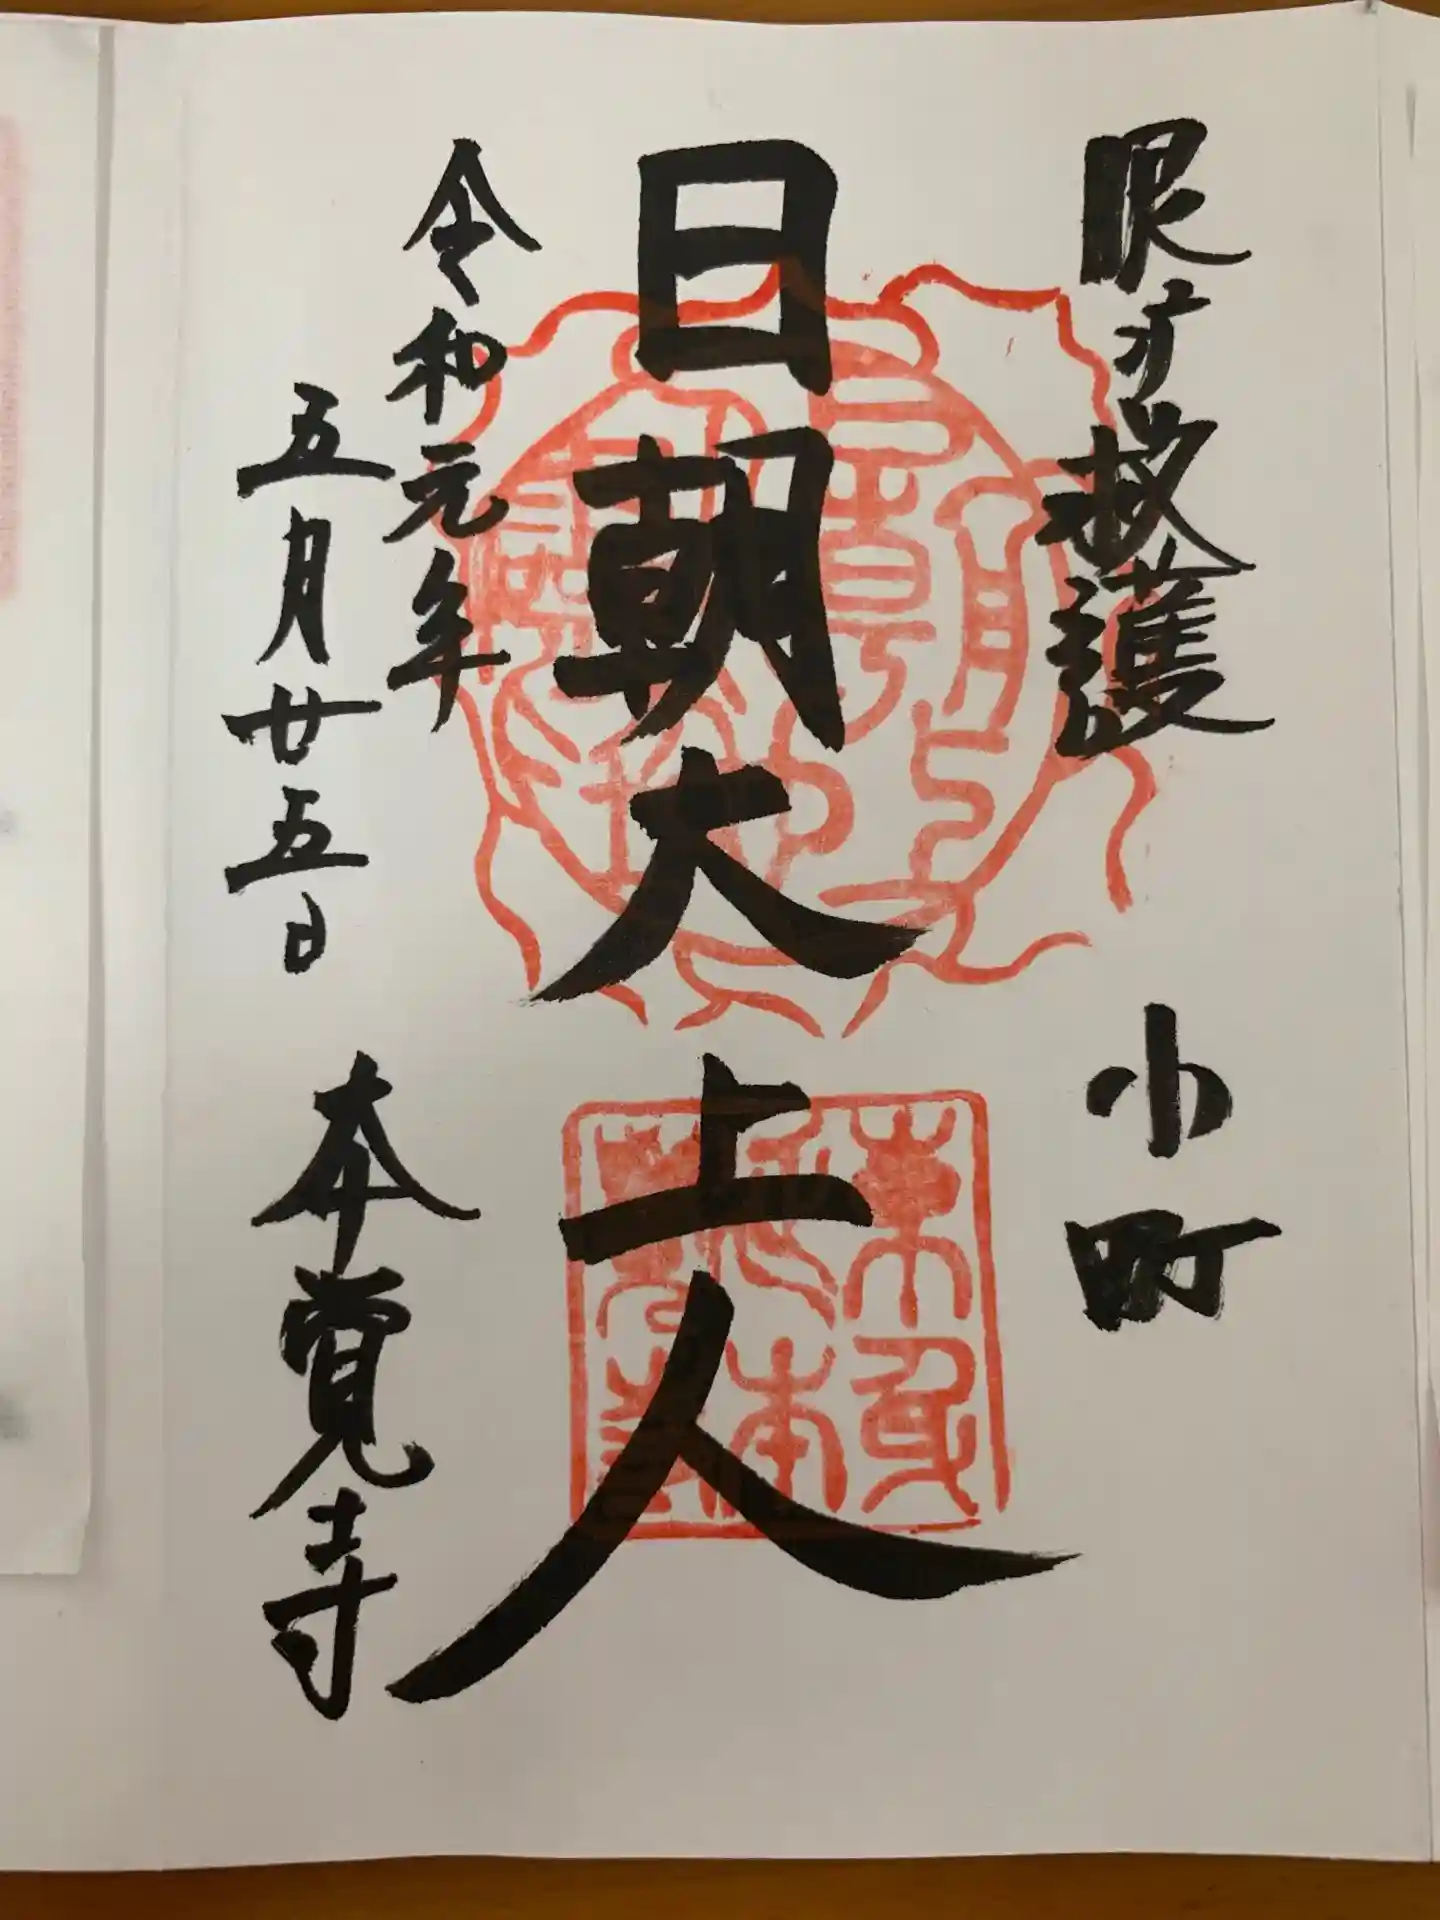 眼才救護
小町
日朝大上人
令和元年
五月廿五日
本覺寺